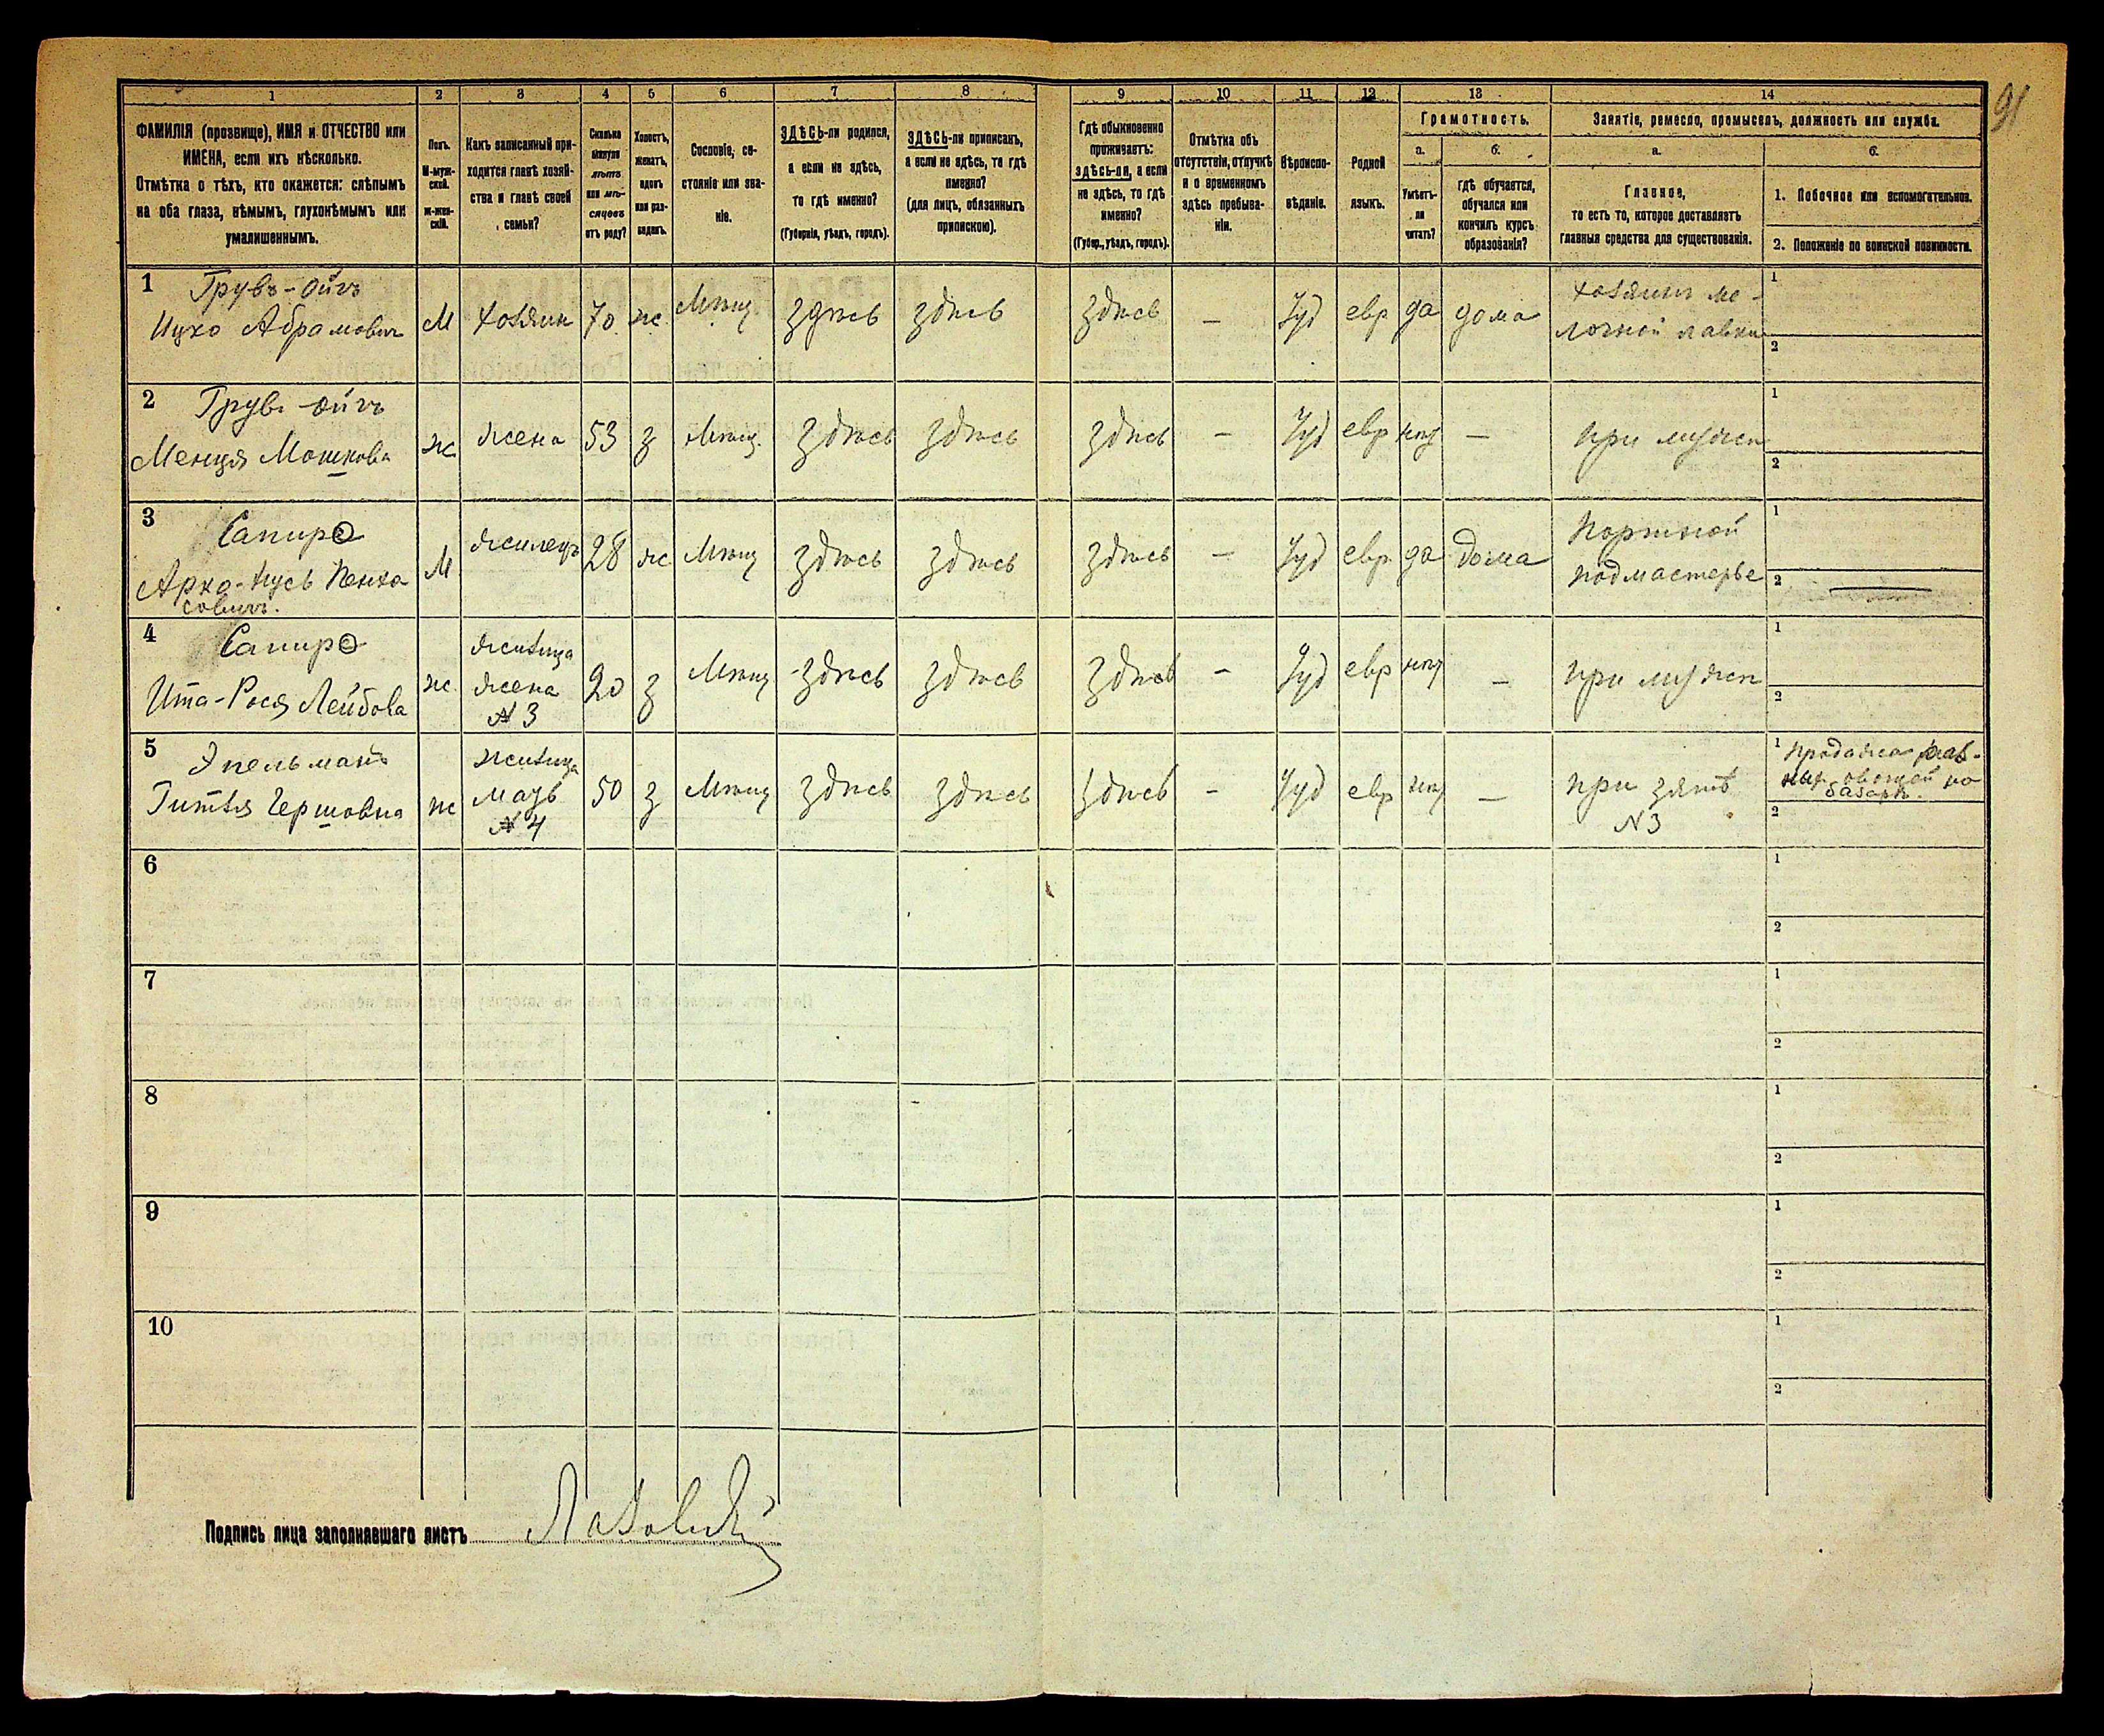 91
1 2 3 4 5 6 7 8 9 10 11 12 13 14
ФАМИЛІЯ (прозвище), ИМЯ и ОТЧЕСТВО или
ИМЕНА, если ихъ нѣсколько.
Отмѣтка о тѣхъ, кто окажется: слѣпымъ
на оба глаза, нѣмымъ, глухонѣмымъ или
умалишеннымъ.
Полъ.
М-муж-
ской.
ж-жен-
скій.
Какъ записанный при-
ходится главѣ хозяй-
ства и главѣ своей
семьи?
Сколько
минуло
лѣтъ
или мѣ-
сяцевъ
отъ роду?
Холостъ,
женатъ,
вдовъ
или раз-
веденъ.
Сословіе, со-
стояніе или зва-
ніе.
ЗДѢСЬ-ли родился,
а если не здѣсь,
то гдѣ именно?
(Губернія, уѣздъ, городъ).
ЗДѢСЬ-ли приписанъ,
а если не здѣсь, то гдѣ
именно?
(для лицъ, обязанныхъ
припискою).
Гдѣ обыкновенно
проживаетъ:
здѣсь-ли, а если
не здѣсь, то гдѣ
именно?
(Губер., уѣздъ, городъ).
Отмѣтка объ
отсутствіи, отлучкѣ
и о временномъ
здѣсь пребыва-
ніи.
Вѣроиспо-
вѣданіе.
Родной
языкъ.
Грамотность.
а.
Умѣетъ-
ли
читать?
б.
гдѣ обучается,
обучался или
кончилъ курсъ
образованія?
Занятіе, ремесло, промыселъ, должность или служба.
а.
Главное,
то есть то, которое доставляетъ
главныя средства для существованія.
б.
1. Побочное или вспомогательное.
2. Положеніе по воинской повинности.
1 Грувъ-Ойгъ
Ицко Абрамовичъ М хозяин 70 ж Мѣщ здѣсь здѣсь здѣсь — Іуд евр да дома хозяинъ мо-
лочной лавки
1
2
2 Грувъ-Ойгъ
Менця Мошкова ж жена 53 з Мѣщ. здѣсь здѣсь здѣсь — Іуд евр нѣт — при мужѣ
1
2
3 Сапиро
Арко-Нусь Пенха
совичъ. М жилецъ 28 ж Мѣщ здѣсь здѣсь здѣсь — Іуд евр да дома Портной
подмастерье
1
2 —
4 Сапиро
Ита-Рося Лейбова ж жилица
жена
№ 3 20 з Мѣщ здѣсь здѣсь здѣсь — Іуд евр нѣт — при мужѣ
1
2
5 Эпельманъ
Гитля Гершовна ж жилица
мать
№ 4 50 з Мѣщ здѣсь здѣсь здѣсь — Іуд евр нѣт — при зятѣ
№ 3
1 продажа раз-
ных овощей на
базарѣ.
2
6
1
2
7
1
2
8
1
2
9
1
2
10
1
2
Подпись лица заполнявшаго листъ